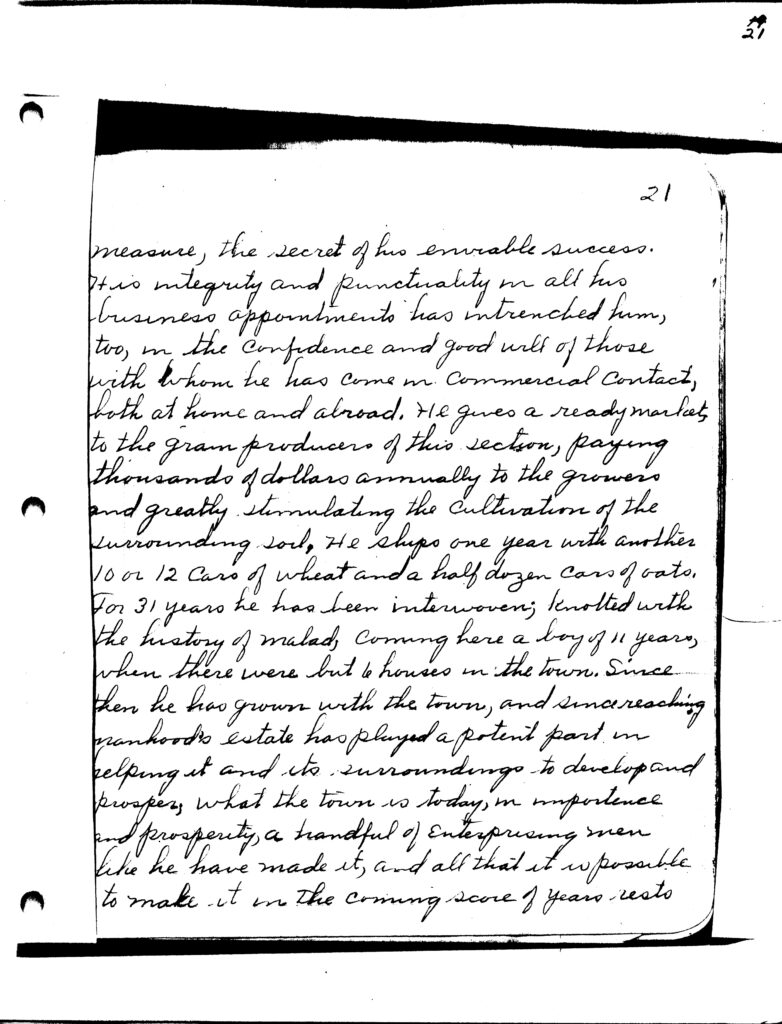 21
21
measure, the secret of his enviable success.
His integrity and punctuality in all his
business appointments has intrenched him,
too, in the confidence and good will of those
with whom he has come in commercial contact,
both at home and abroad. He gives a ready market
to the grain producers of this section, paying
thousands of dollars annually to the growers
and greatly stimulating the cultivation of the
surrounding soil. He ships one year with another
10 or 12 cars of wheat and a half dozen cars of oats.
For 31 years he has been interwoven; knotted with
the history of malad, coming here a boy of 11 years,
when there were but 6 houses in the town. Since
then he has grown with the town, and since reaching
manhood's estate has played a potent part in
helping it and its surroundings to develop and
prosper; what the town is today, in importence
and prosperity, a handful of Enterprising men
like he have made it, and all that it is possible
to make it in the coming score of years rests